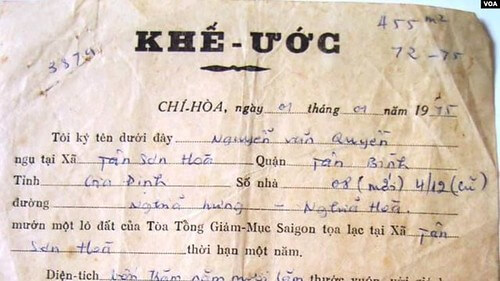 VOA
455 m2
72-75
3874
KHẾ-ƯỚC
CHÍ-HÒA, ngày 01 tháng 01 năm 1975
Tôi ký tên dưới đây Nguyễn văn Quyền
ngụ tại Xã Tân Sơn Hoà Quận Tân Bình
Tỉnh Gia Định Số nhà 08 (mới) 4/12 (cũ)
đường Nghĩa hưng - Nghĩa Hoà.
mướn một lô đất của Tòa Tổng Giám-Mục Saigon tọa lạc tại Xã Tân
Sơn Hoà thời hạn một năm.
Diện-tích bốn trăm năm mươi lăm thước vuông với giá